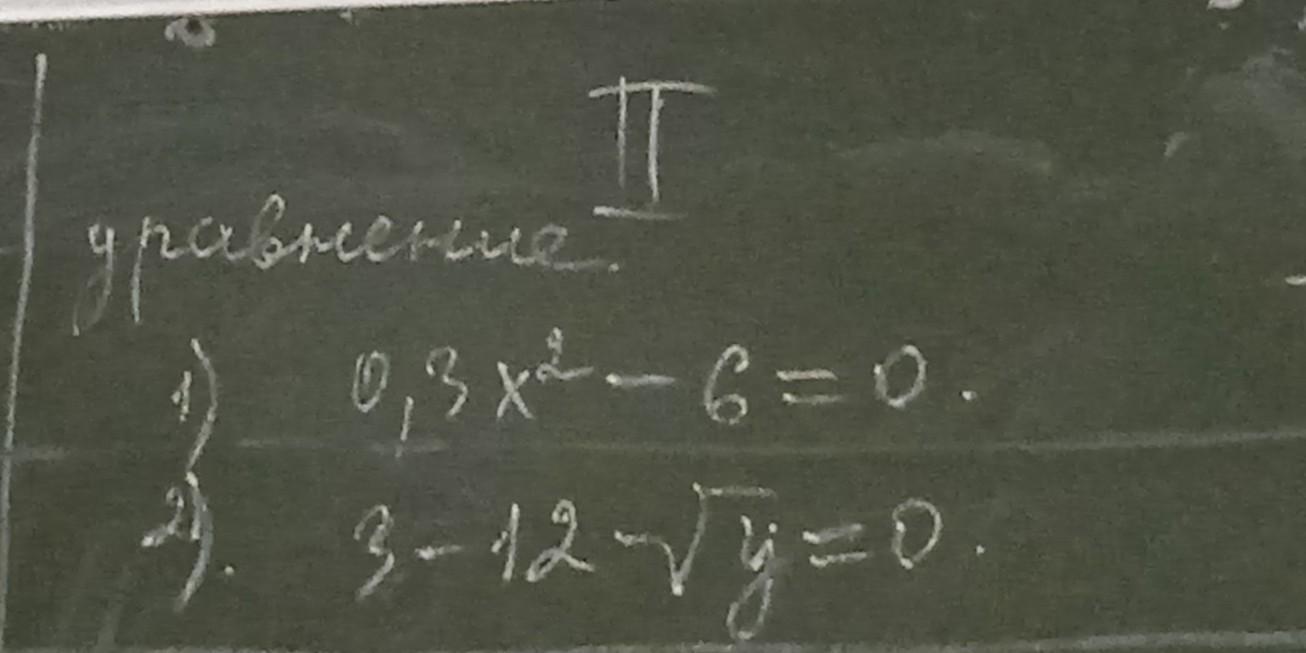 II
уравнение.
1) 0,3x² - 6 = 0.
2). 3 - 12√y = 0.